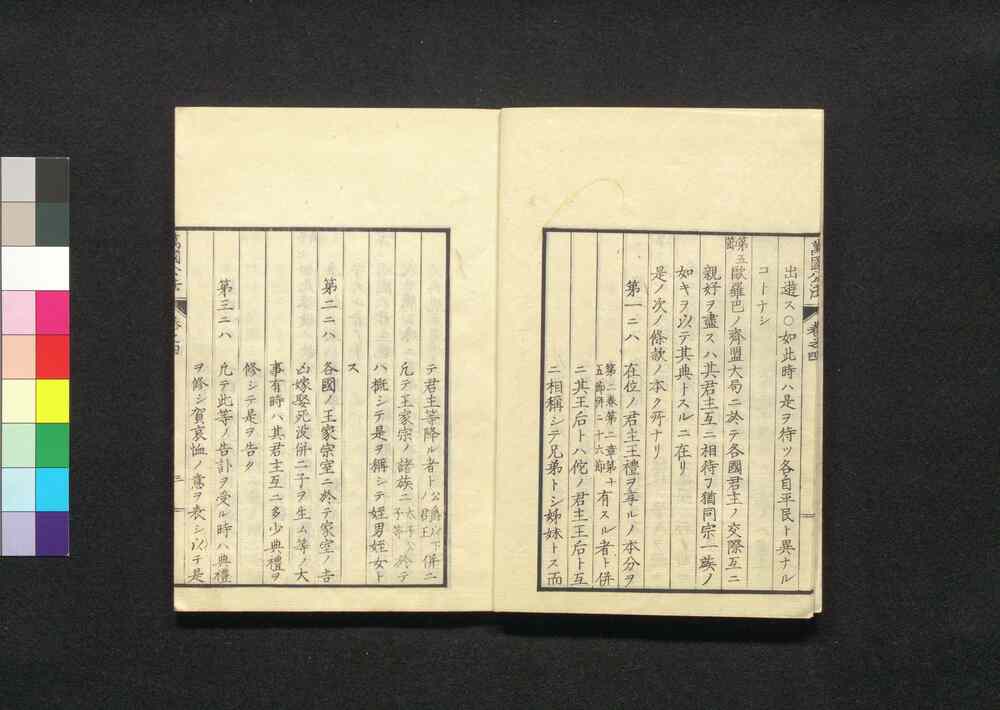 萬國公法
卷之四
出遊ス○如此時ハ是ヲ待ツ各自平民ト異ナル
コトナシ
第五節
歐羅巴ノ齊盟大局ニ於テ各國君主ノ交際互ニ
親好ヲ盡スハ其君主互ニ相待ヿ猶同宗一族ノ
如キヲ以テ其典トスルニ在リ
是ノ次ノ條款ノ本ク所ナリ
第一ニハ 在位ノ君主王禮ヲ享ルノ本分ヲ
第二卷第二章第十五節併ニ十六節
有スル者ト併
ニ其王后トハ佗ノ君主王后ト互
ニ相稱シテ兄弟トシ姊妹トス而
テ君主等降ル者ト
公爵以下ノ君王
併ニ
凢テ王家宗ノ諸族ニ
太子公子等
於テ
ハ概シテ是ヲ稱シテ姪男姪女ト
ス
第二ニハ 各國ノ王家宗室ニ於テ家室ノ吉
凶嫁娶死没併ニ子ヲ生ム等ノ大
事有時ハ其君主互ニ多少典禮ヲ
修シテ是ヲ告ク
第三ニハ 凢テ此等ノ告訃ヲ受ル時ハ典禮
ヲ修シ賀哀恤ノ意ヲ表シ以テ是
三